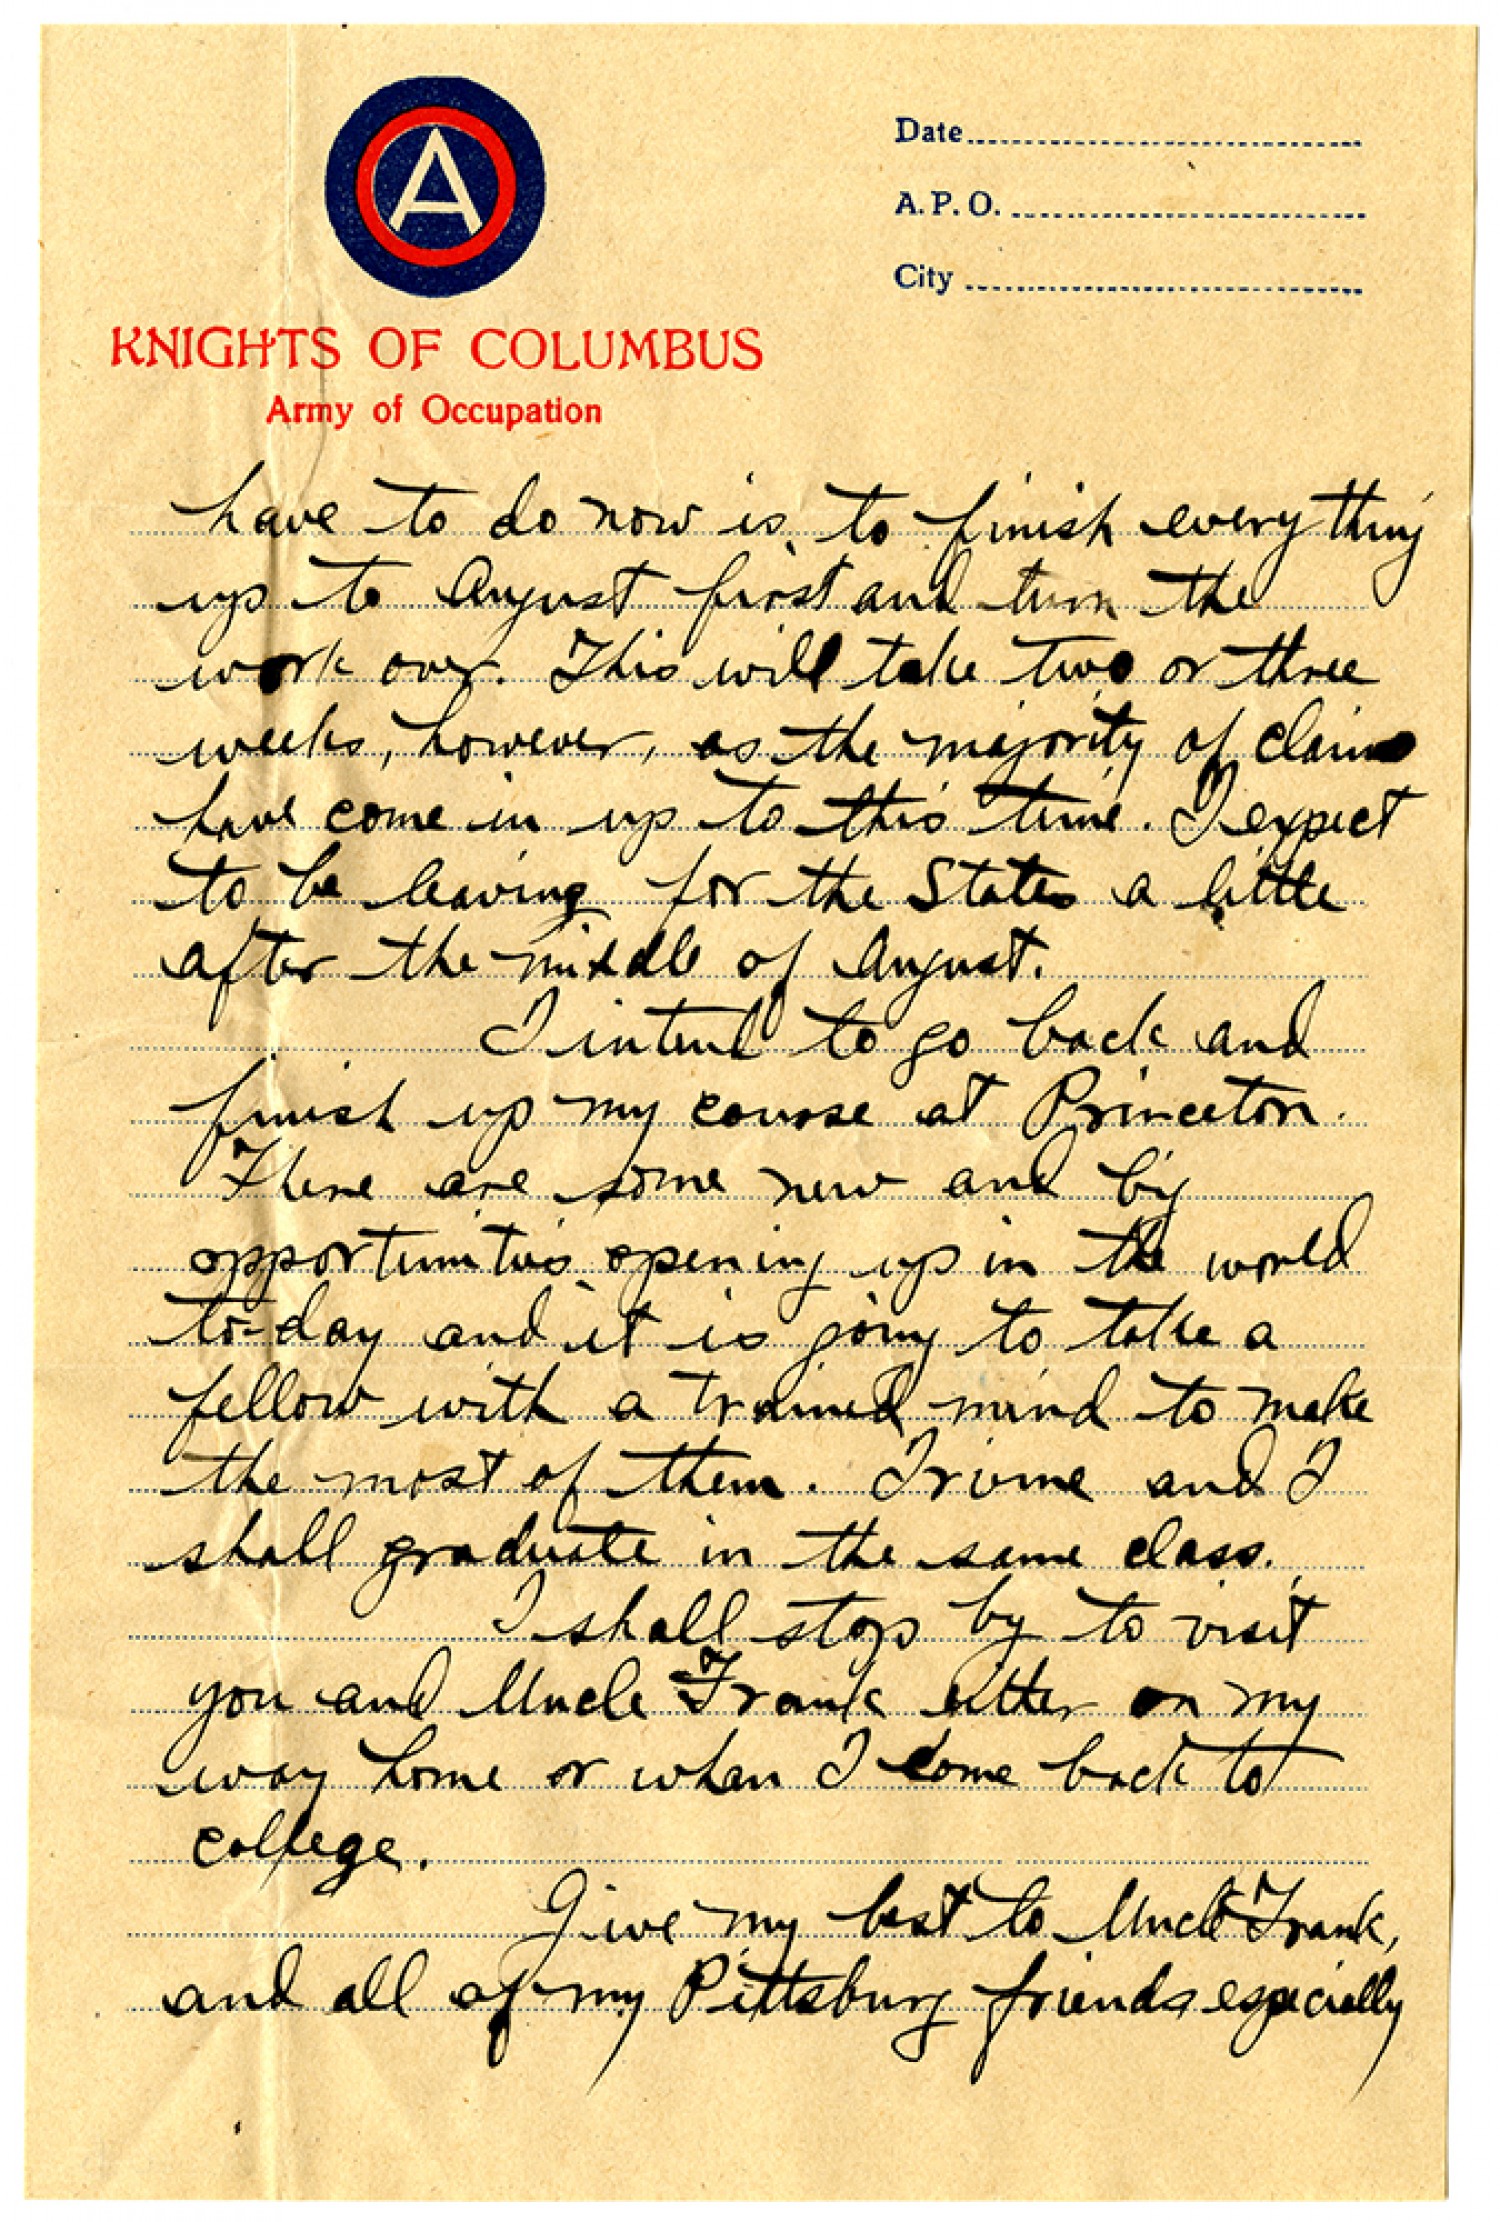 A
Date
A. P. O.
City
KNIGHTS OF COLUMBUS
Army of Occupation
have to do now is to finish everything
up to August first and turn the
work over. This will take two or three
weeks, however, as the majority of claims
have come in up to this time. I expect
to be leaving for the States a little
after the middle of August.
I intend to go back and
finish up my course at Princeton.
There are some new and big
opportunities opening up in the world
to-day and it is going to take a
fellow with a trained mind to make
the most of them. Irvine and I
shall graduate in the same class.
I shall stop by to visit
you and Uncle Frank either on my
way home or when I come back to
college.
Give my best to Uncle Frank,
and all of my Pittsburg friends especially